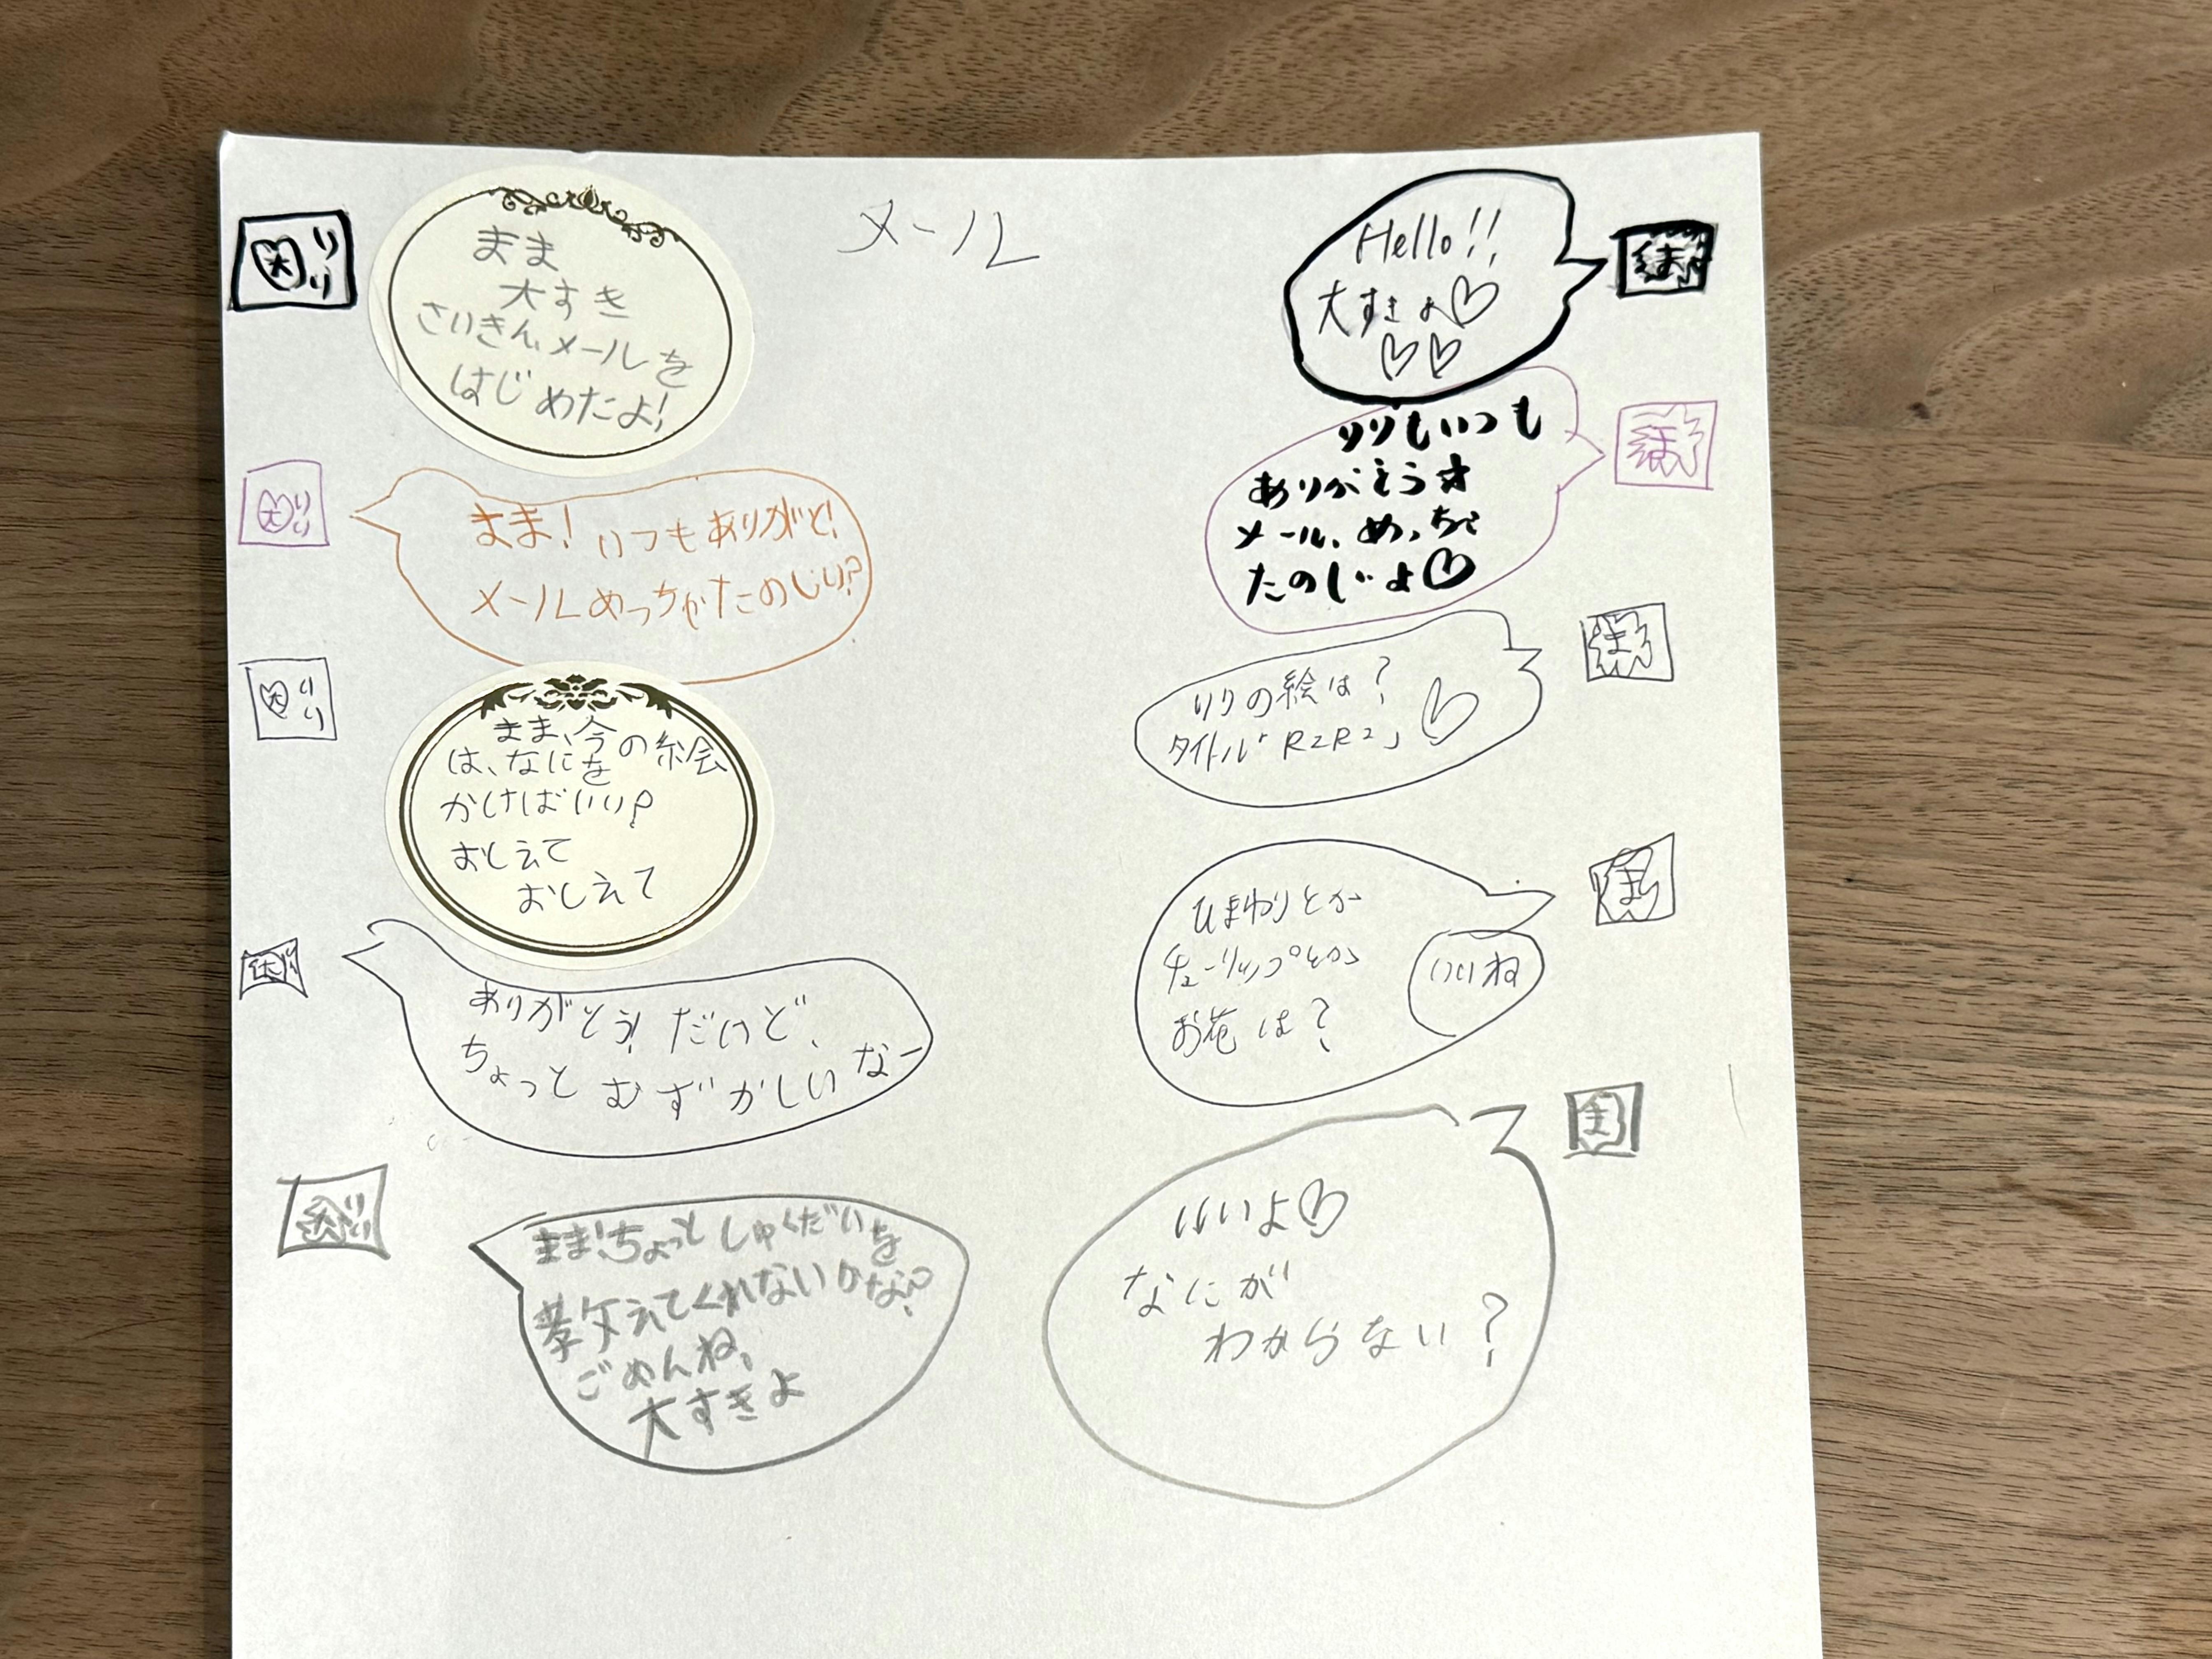 メール
大 りり
まま
大すき
さいきん、メールを
はじめたよ!
Hello!!
大すきよ♡
♡♡
まま
大 りり
まま! いつもありがと!
メールめっちゃたのしい?
りりもいつも
ありがとう☆
メール、めっちゃ
たのしいよ♡
まま
大 りり
まま、今の絵
は、なにを
かけばいい?
おしえて
おしえて
りりの絵は?
タイトル「R2R2」♡
まま
大 りり
ありがとう! だけど、
ちょっとむずかしいなー
ひまわりとか
チューリップとか
お花は?
いいね
まま
大 りり
まま!ちょっとしゅくだいを
教えてくれないかな?
ごめんね、
大すきよ
いいよ♡
なにが
わからない?
まま